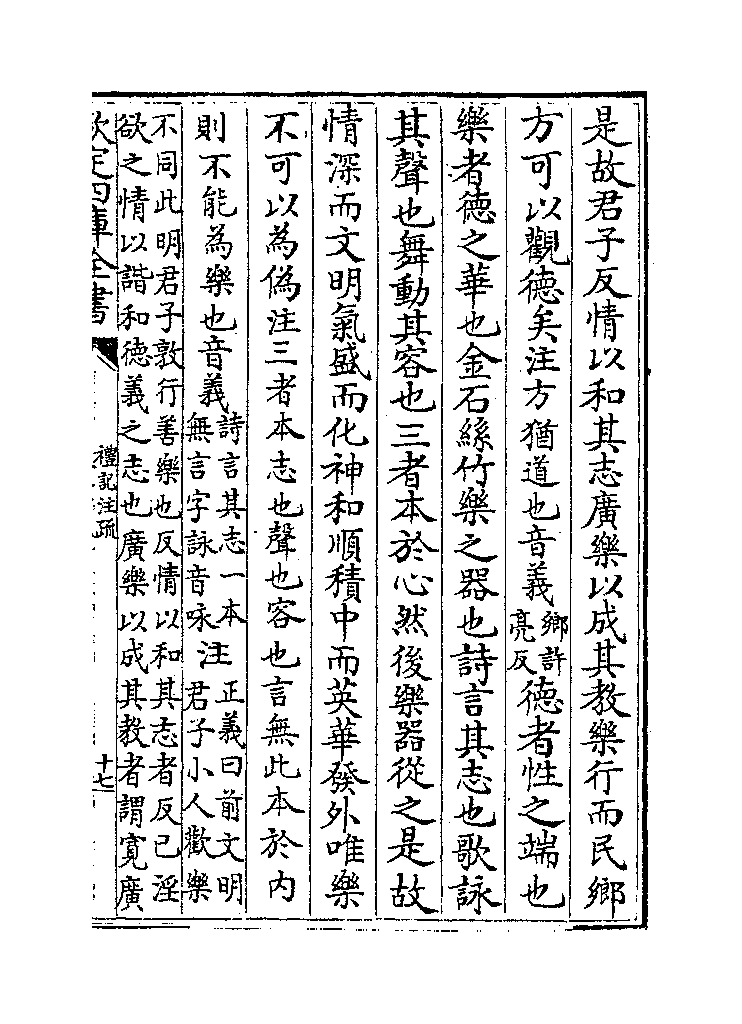 是故君子反情以和其志廣樂以成其教樂行而民鄉
方可以觀德矣注方猶道也音義鄉許
亮反德者性之端也
樂者德之華也金石絲竹樂之器也詩言其志也歌詠
其聲也舞動其容也三者本於心然後樂器從之是故
情深而文明氣盛而化神和順積中而英華發外唯樂
不可以為偽注三者本志也聲也容也言無此本於內
則不能為樂也音義詩言其志一本
無言字詠音咏注正義曰前文明
君子小人歡樂
不同此明君子敦行善樂也反情以和其志者反己淫
欲之情以諧和德義之志也廣樂以成其教者謂寬廣
欽定四庫全書
禮記注疏
十七